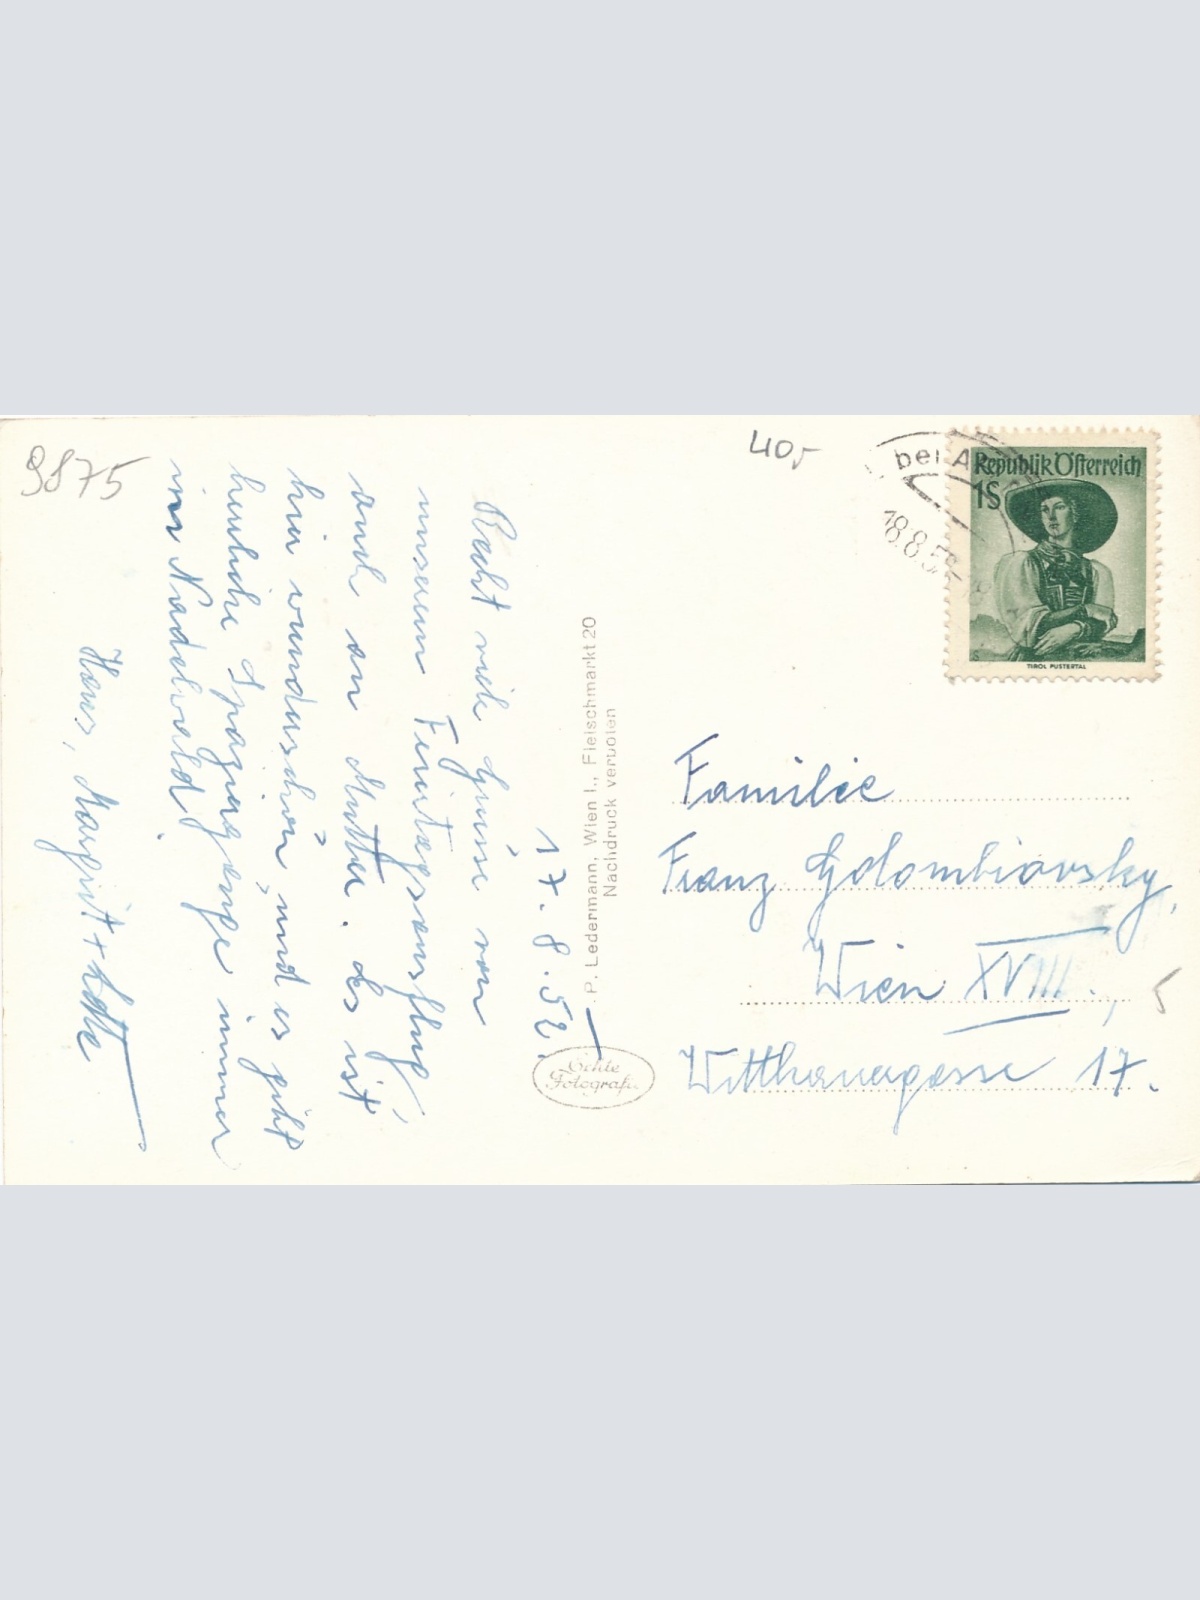 9875
40,-
bei A
18.8.52
Republik Österreich
1S
TIROL PUSTERTAL
17. 8. 52.
Recht viele Grüsse von
unserem Feiertagsausflug,
auch an Mutter. Es ist
hier wunderschön, und es gibt
herrliche Spaziergänge immer
im Nadelwald.
Hans, Margrit + Lotte
P. Ledermann, Wien I., Fleischmarkt 20
Nachdruck verboten
Echte
Fotografie
Familie
Franz Golombiovsky,
Wien XVIII.,
Witthauergasse 17.